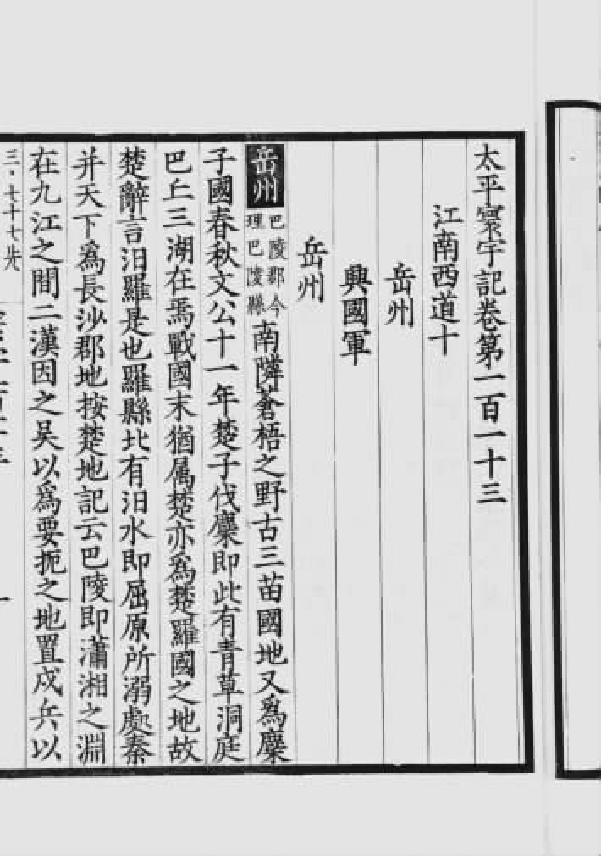 太平寰宇記卷第一百一十三
江南西道十
岳州
興國軍
岳州
岳州巴陵郡今理巴陵縣南隣蒼梧之野古三苗國地又爲麋
子國春秋文公十一年楚子伐麇即此有青草洞庭
巴丘三湖在焉戰國末猶属楚亦爲楚羅國之地故
楚辭言汨羅是也羅縣北有汨水即屈原所溺處秦
并天下爲長沙郡地按楚地記云巴陵即瀟湘之淵
在九江之間二漢因之吳以爲要扼之地置戍兵以
三·七十七